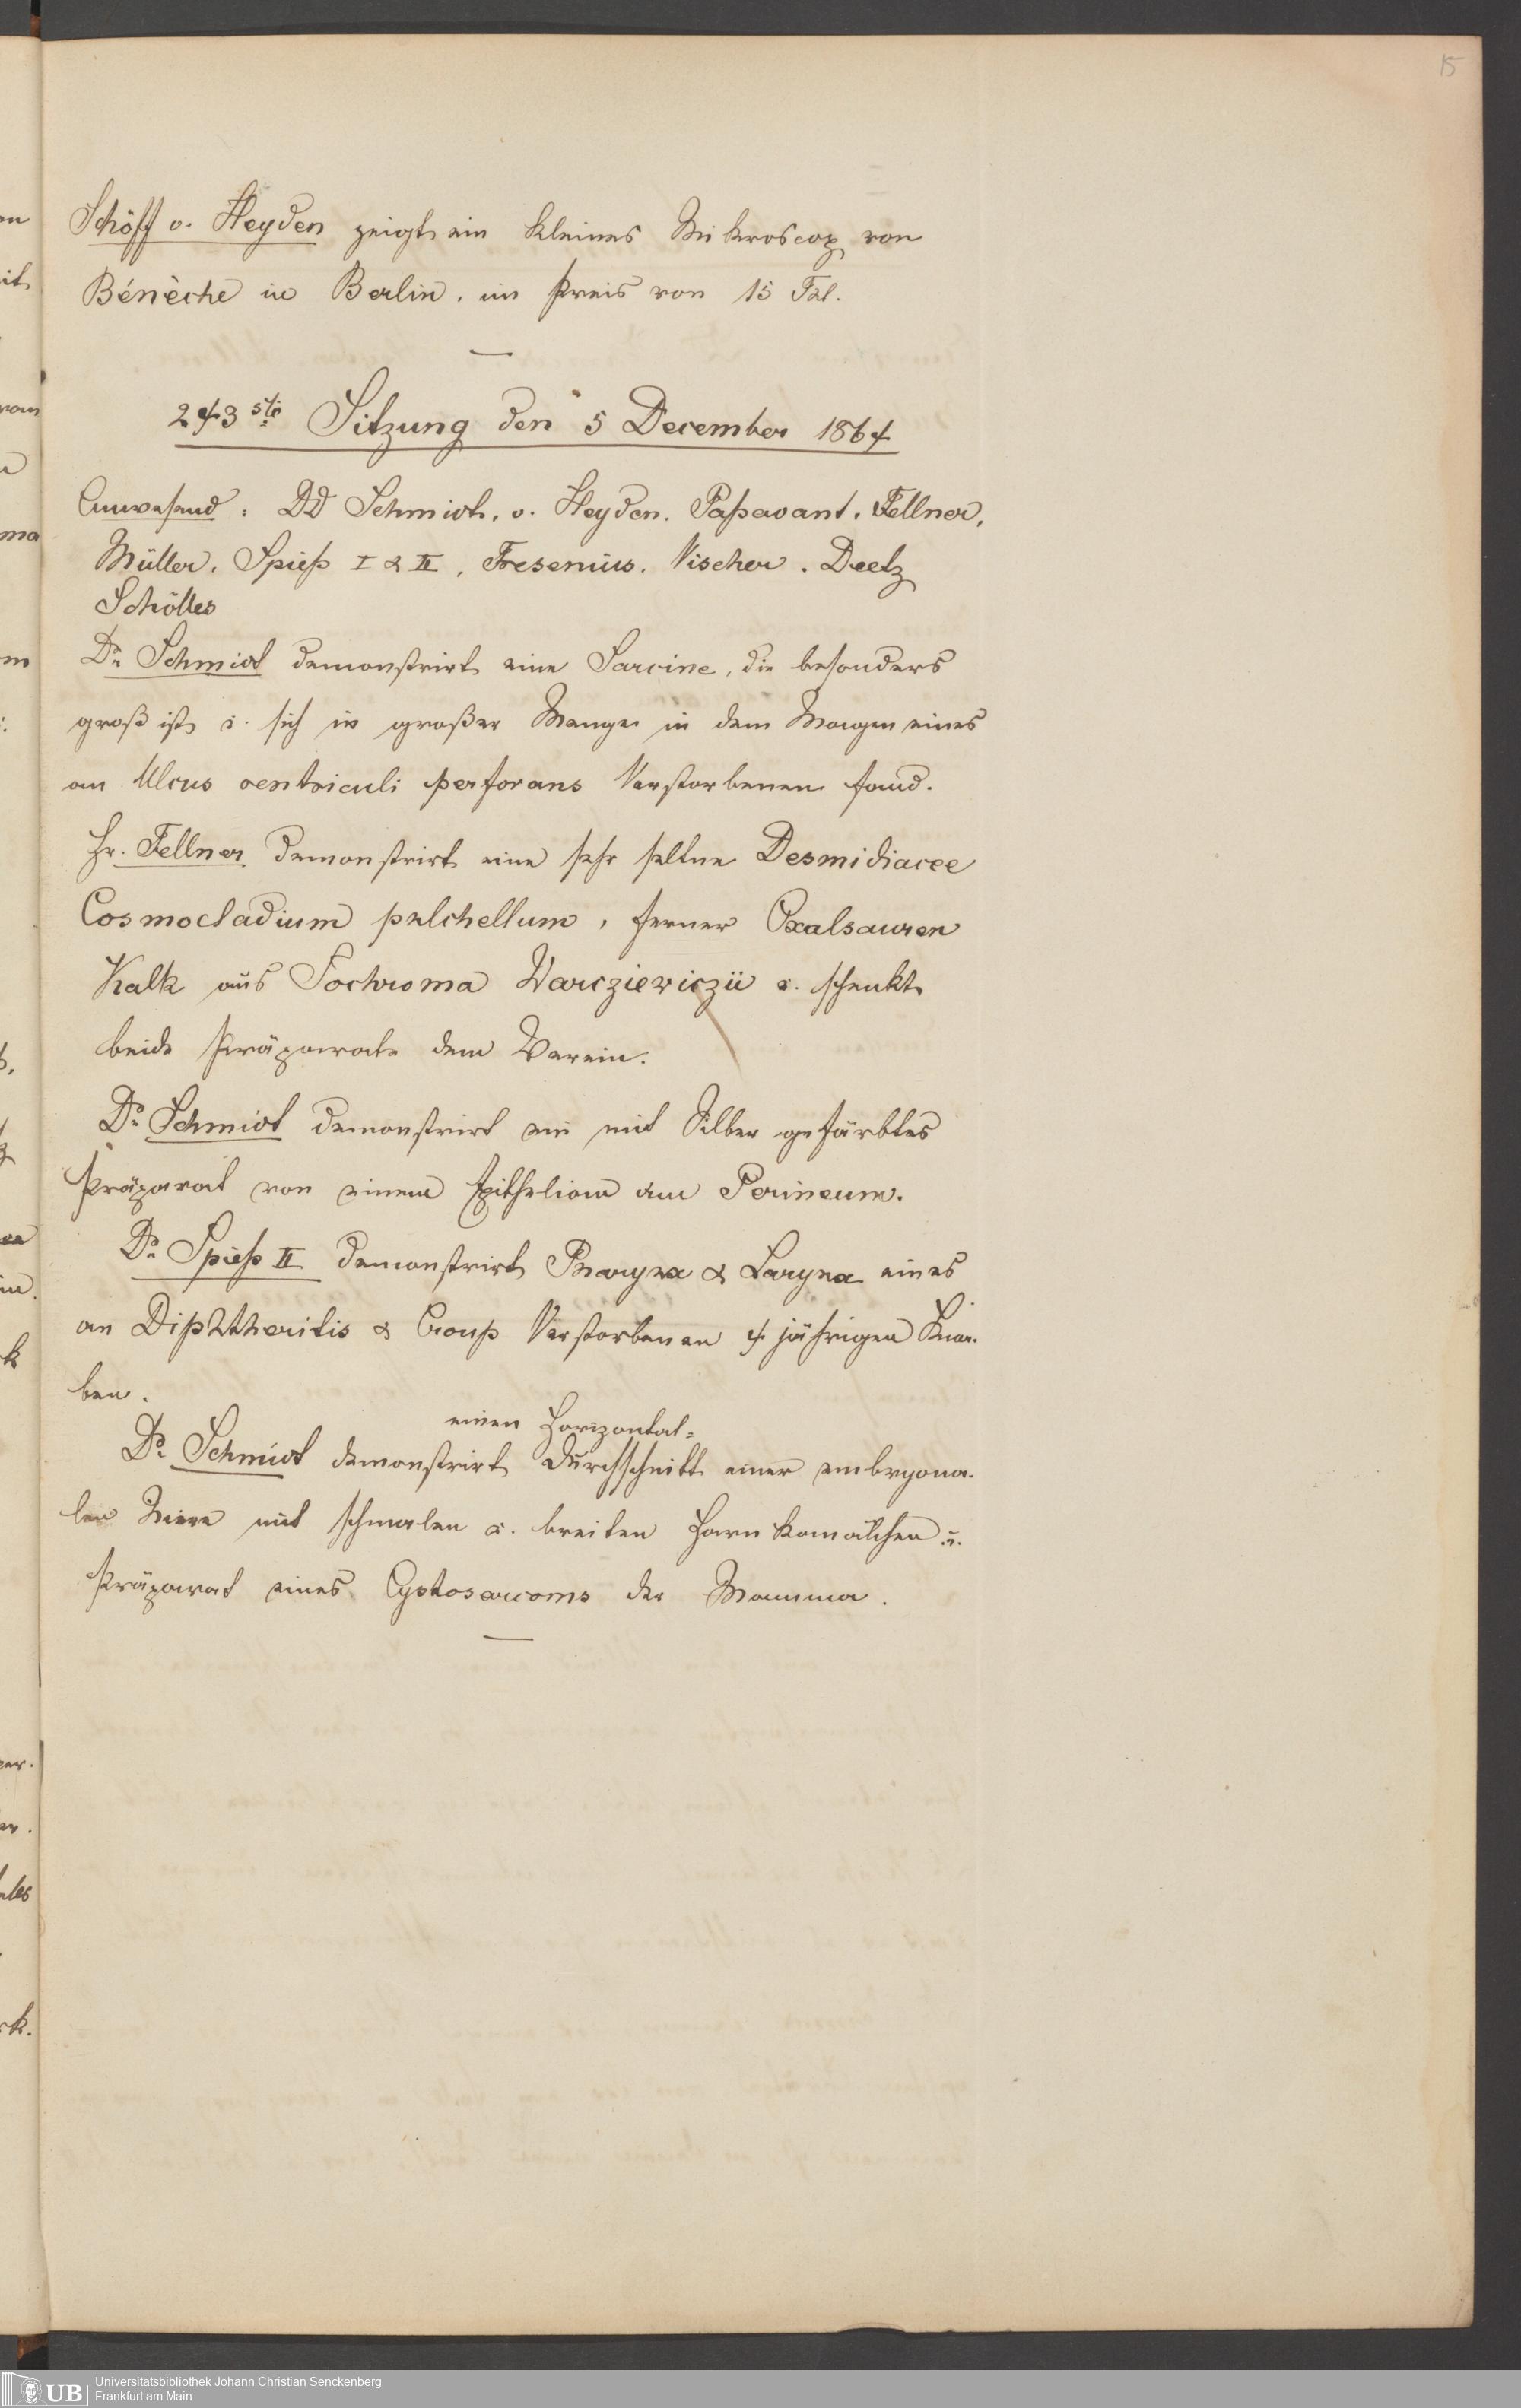 15
Schöff v. Heyden zeigt ein kleines Mikroscop von
Bénèche in Berlin, im Preis von 15 Thl.
243ste Sitzung den 5 December 1864
Anwesend: DD Schmidt, v. Heyden. Passavant. Fellner,
Müller. Spieß I & II, Fresenius. Vischer. Deetz
Schölles
Dr. Schmidt demonstrirt eine Sarcine, die besonders
groß ist u. sich in großer Menge in dem Magen eines
an Ulcus ventriculi perforans Verstorbenen fand.
Hr. Fellner demonstrirt eine sehr seltne Desmidiacee
Cosmocladium pulchellum, ferner Oxalsauren
Kalk aus Iochroma Warcziewiczii u. schenkt
beide Präparate dem Verein.
Dr. Schmidt demonstrirt ein mit Silber gefärbtes
Präparat von einem Epitheliom am Perineum.
Dr. Spieß II demonstrirt Pharynx & Larynx eines
an Diphtheritis & Croup Verstorbenen 4 jährigen Kna-
ben.
einen Horizontal-
Dr. Schmidt demonstrirt Durchschnitt einer embryona-
len Niere mit schmalen u. breiten Harnkanälchen u.
Präparat eines Cystosarcoms der Mamma.
UB Universitätsbibliothek Johann Christian Senckenberg
Frankfurt am Main